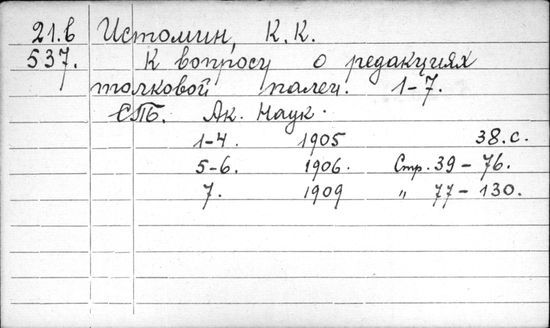 21.b Истомин, К.К.
537. К вопросу о редакциях
толковой палеи. 1-7.
СПБ. Ак. Наук.
1-4. 1905 38.с.
5-6. 1906. Стр. 39-76.
7. 1909 „ 77-130.